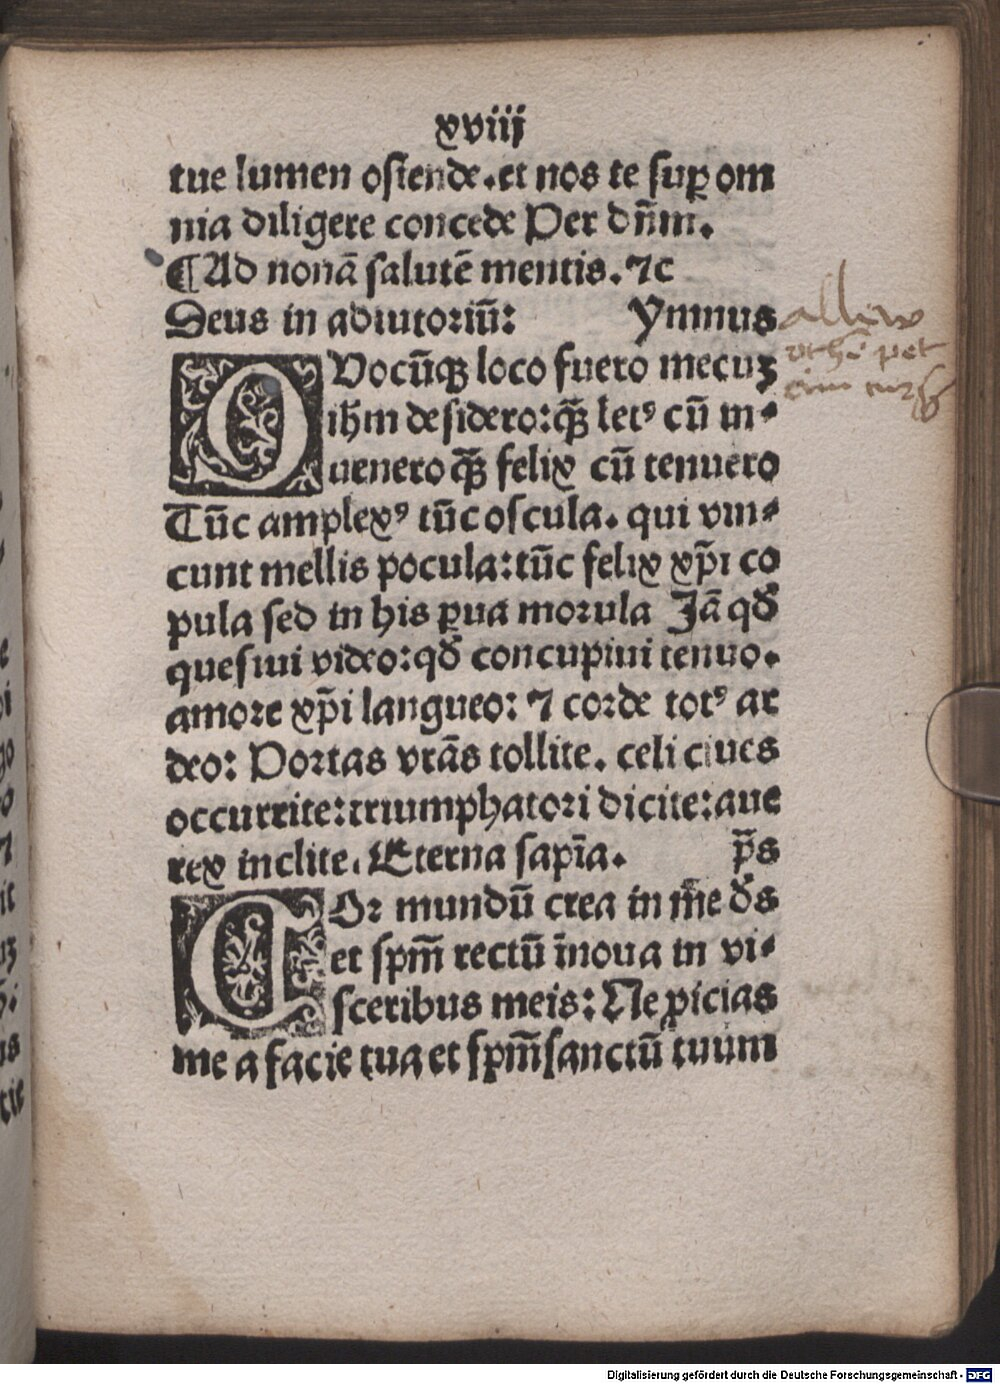 xviij
tue lumen ostende.et nos te suꝑ om
nia diligere concede Per dñm.
¶Ad nonā salutē mentis.⁊c
Deus in adiutoriū: Ymnus
QVocūqꝫ loco fuero mecuꝫ
ihm desidero:qꝫ̄ letꝰ cū in⸗
uenero qꝫ̄ felix cū tenuero
Tūc amplexꝰ tūc oscula. qui vin⸗
cunt mellis pocula:tūc felix xp̄i co
pula sed in his ꝑua morula Jā qď
quesiui video:qď concupiui tenuo.
amore xp̄i langueo: ⁊ corde totꝰ ar
deo: Portas vrās tollite. celi ciues
occurrite:triumphatori dicite:aue
rex inclite. Eterna sapīa. p̄s
COr mundū crea in me ďs
et spm̄ rectū īnoua in vi⸗
sceribus meis: Ne ꝓicias
me a facie tua et spm̄sanctū tuum
Digitalisierung gefördert durch die Deutsche Forschungsgemeinschaft - DFG